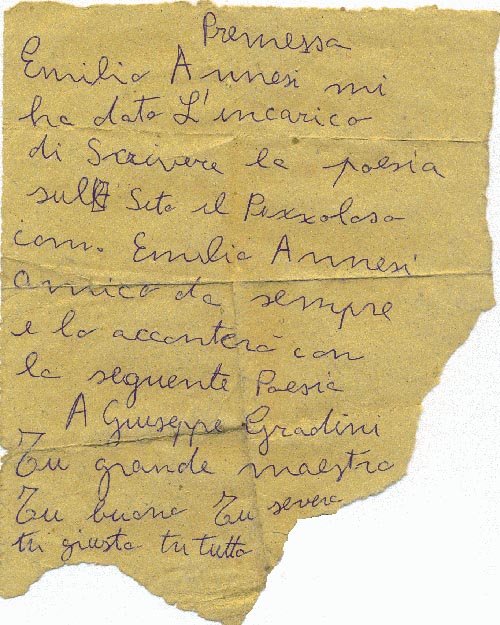 Premessa
Emilio Annesi mi
ha dato L'incarico
di Scrivere la poesia
sul Sito il Pizzoloso
com. Emilio Annesi
amico da sempre
e lo accanterà con
la seguente Poesia
A Giuseppe Gradini
Tu grande maestro
Tu buono Tu severo
tu giusto tu tutto